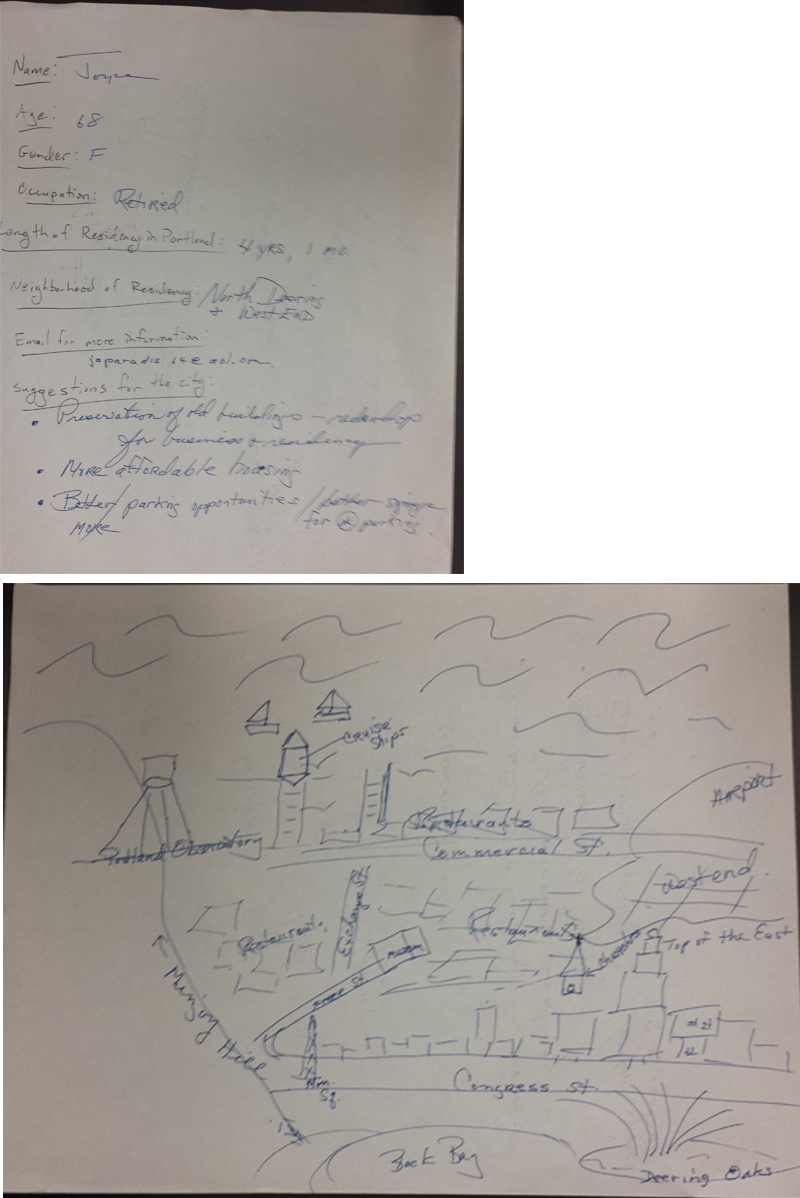 Name: Joyce
Age: 68
Gender: F
Occupation: Retired
Length of Residency in Portland: 4 yrs, 1 mo.
Neighborhood of Residency: North Deering
+ West End
Email for more information:
@ aol.com
Suggestions for the city:
• Preservation of old buildings –
for business + residency
• More affordable housing
• Better/ parking opportunities / better signage
more for parking.
Cruise
Ships
Airport
Portland Observatory
Restaurants
Commercial St.
West end
Exchange St
Restaurants
Restaurants
Top of the East
Museum
Munjoy Hill
Mm.
Sq.
Congress St.
Back Bay
Deering Oaks